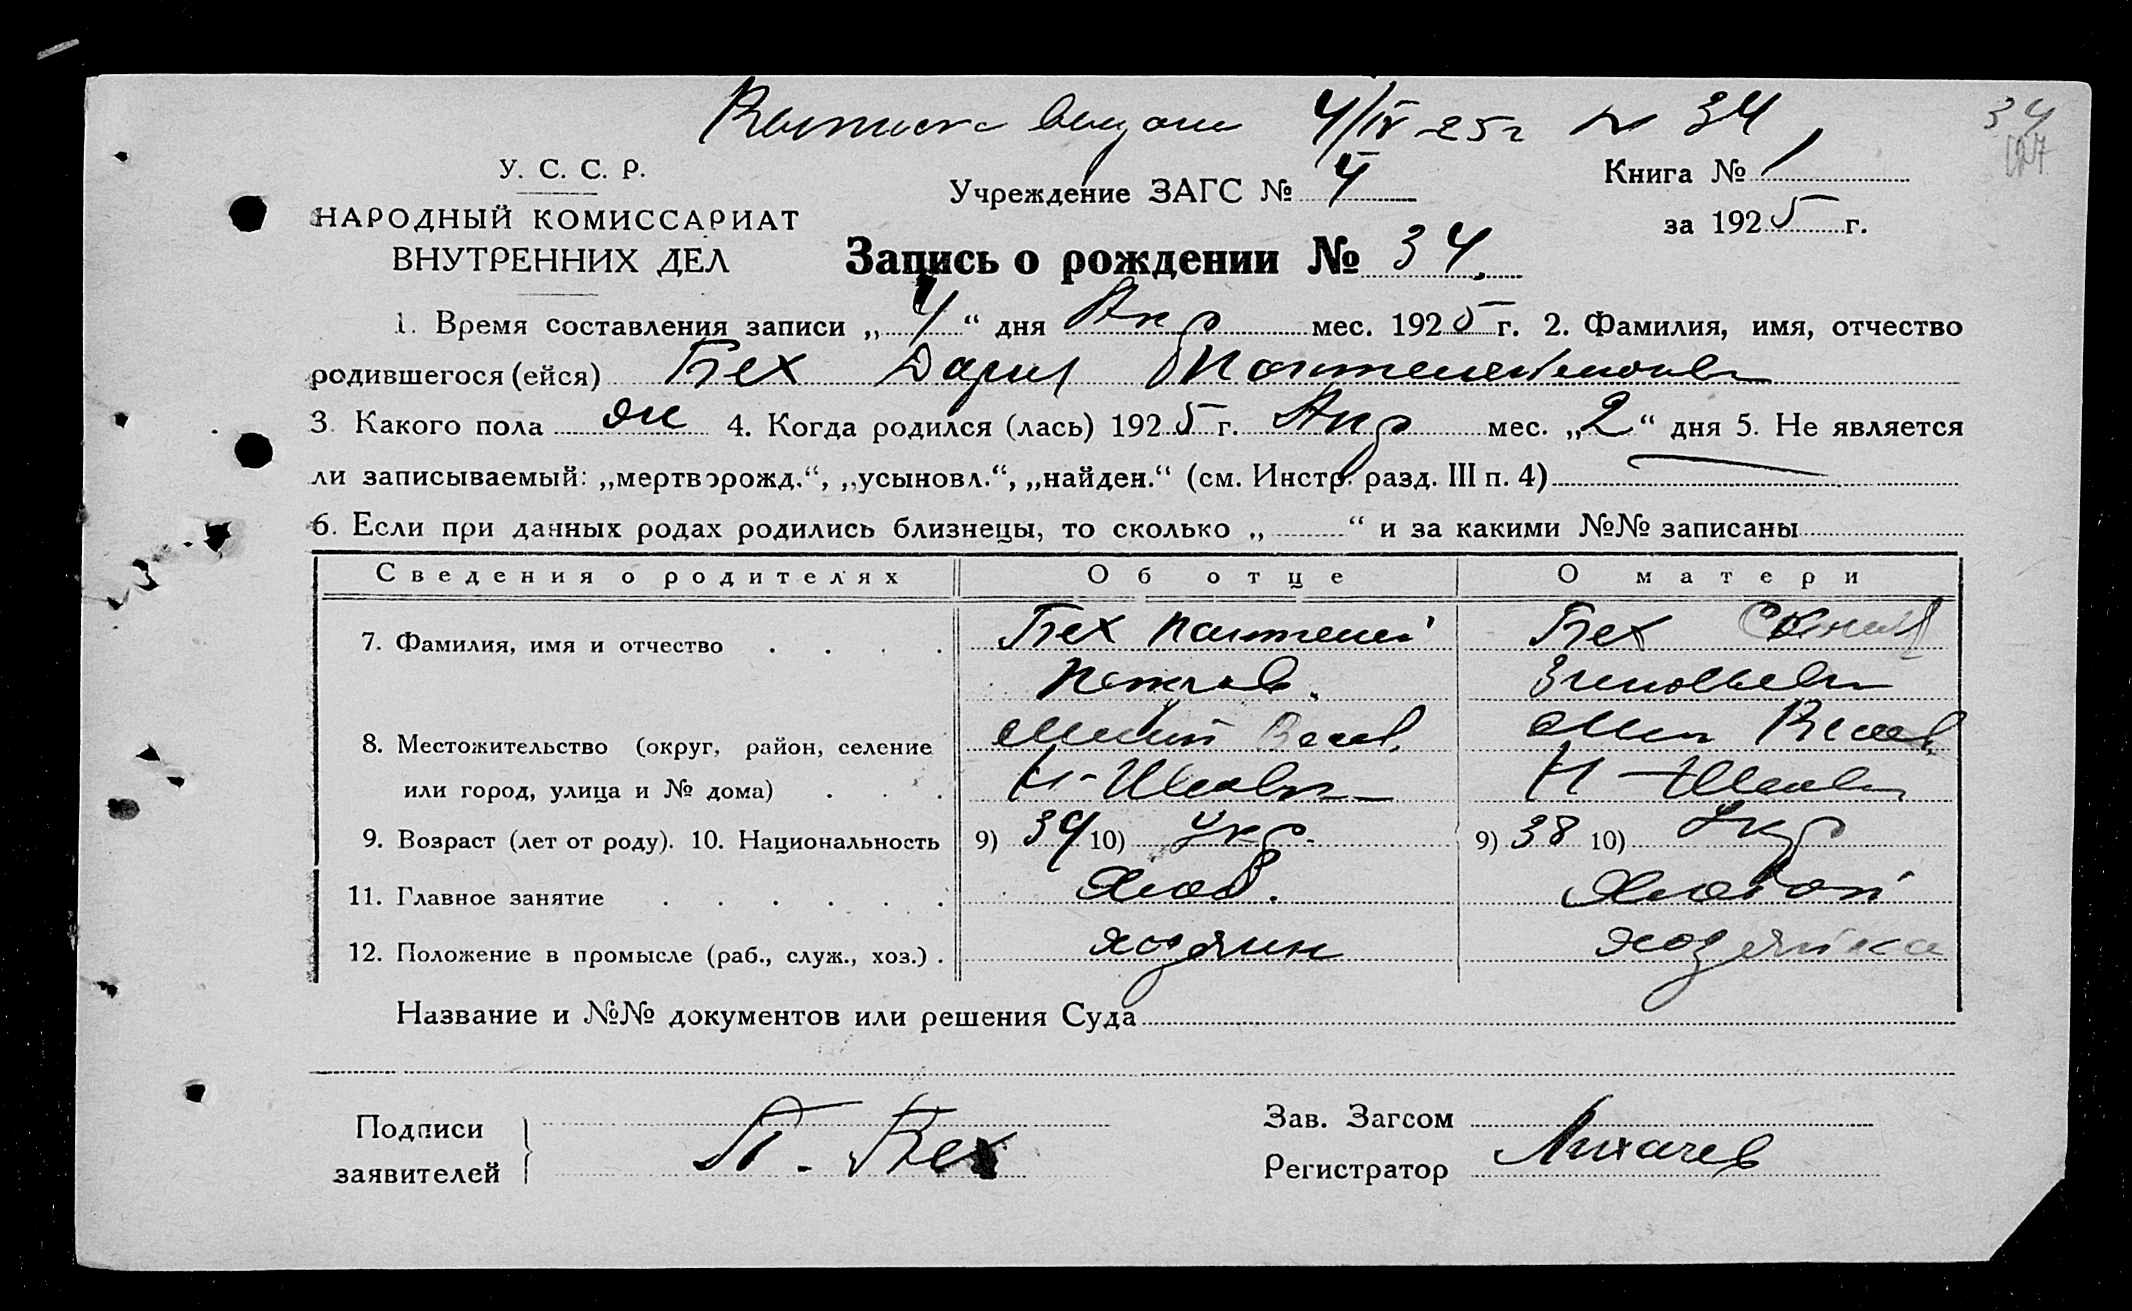 Выписка выдана 4/IV-25 г № 34
34
У. С. С. Р.
НАРОДНЫЙ КОМИССАРИАТ
ВНУТРЕННИХ ДЕЛ
Учреждение ЗАГС № 4
Книга № 1
за 1925 г.
Запись о рождении № 34.
1. Время составления записи „4“ дня Апр мес. 1925 г. 2. Фамилия, имя, отчество
родившегося (ейся) Бех Дария
3. Какого пола ж 4. Когда родился (лась) 1925 г. Апр мес. „2“ дня 5. Не является
ли записываемый: „мертворожд.“, „усыновл.“, „найден.“ (см. Инстр. разд. III п. 4)
6. Если при данных родах родились близнецы, то сколько „ “ и за какими №№ записаны
Сведения о родителях Об отце О матери
7. Фамилия, имя и отчество Бех Пантелей Бех
Петров. Зиновьевн
8. Местожительство (округ, район, селение
или город, улица и № дома)
9. Возраст (лет от роду). 10. Национальность 9) 39 10) Укр. 9) 38 10) Укр
11. Главное занятие Хлеб.
12. Положение в промысле (раб., служ., хоз.) хозяин хозяйка
Название и №№ документов или решения Суда
Подписи
заявителей П. Бех
Зав. Загсом
Регистратор Лихачев